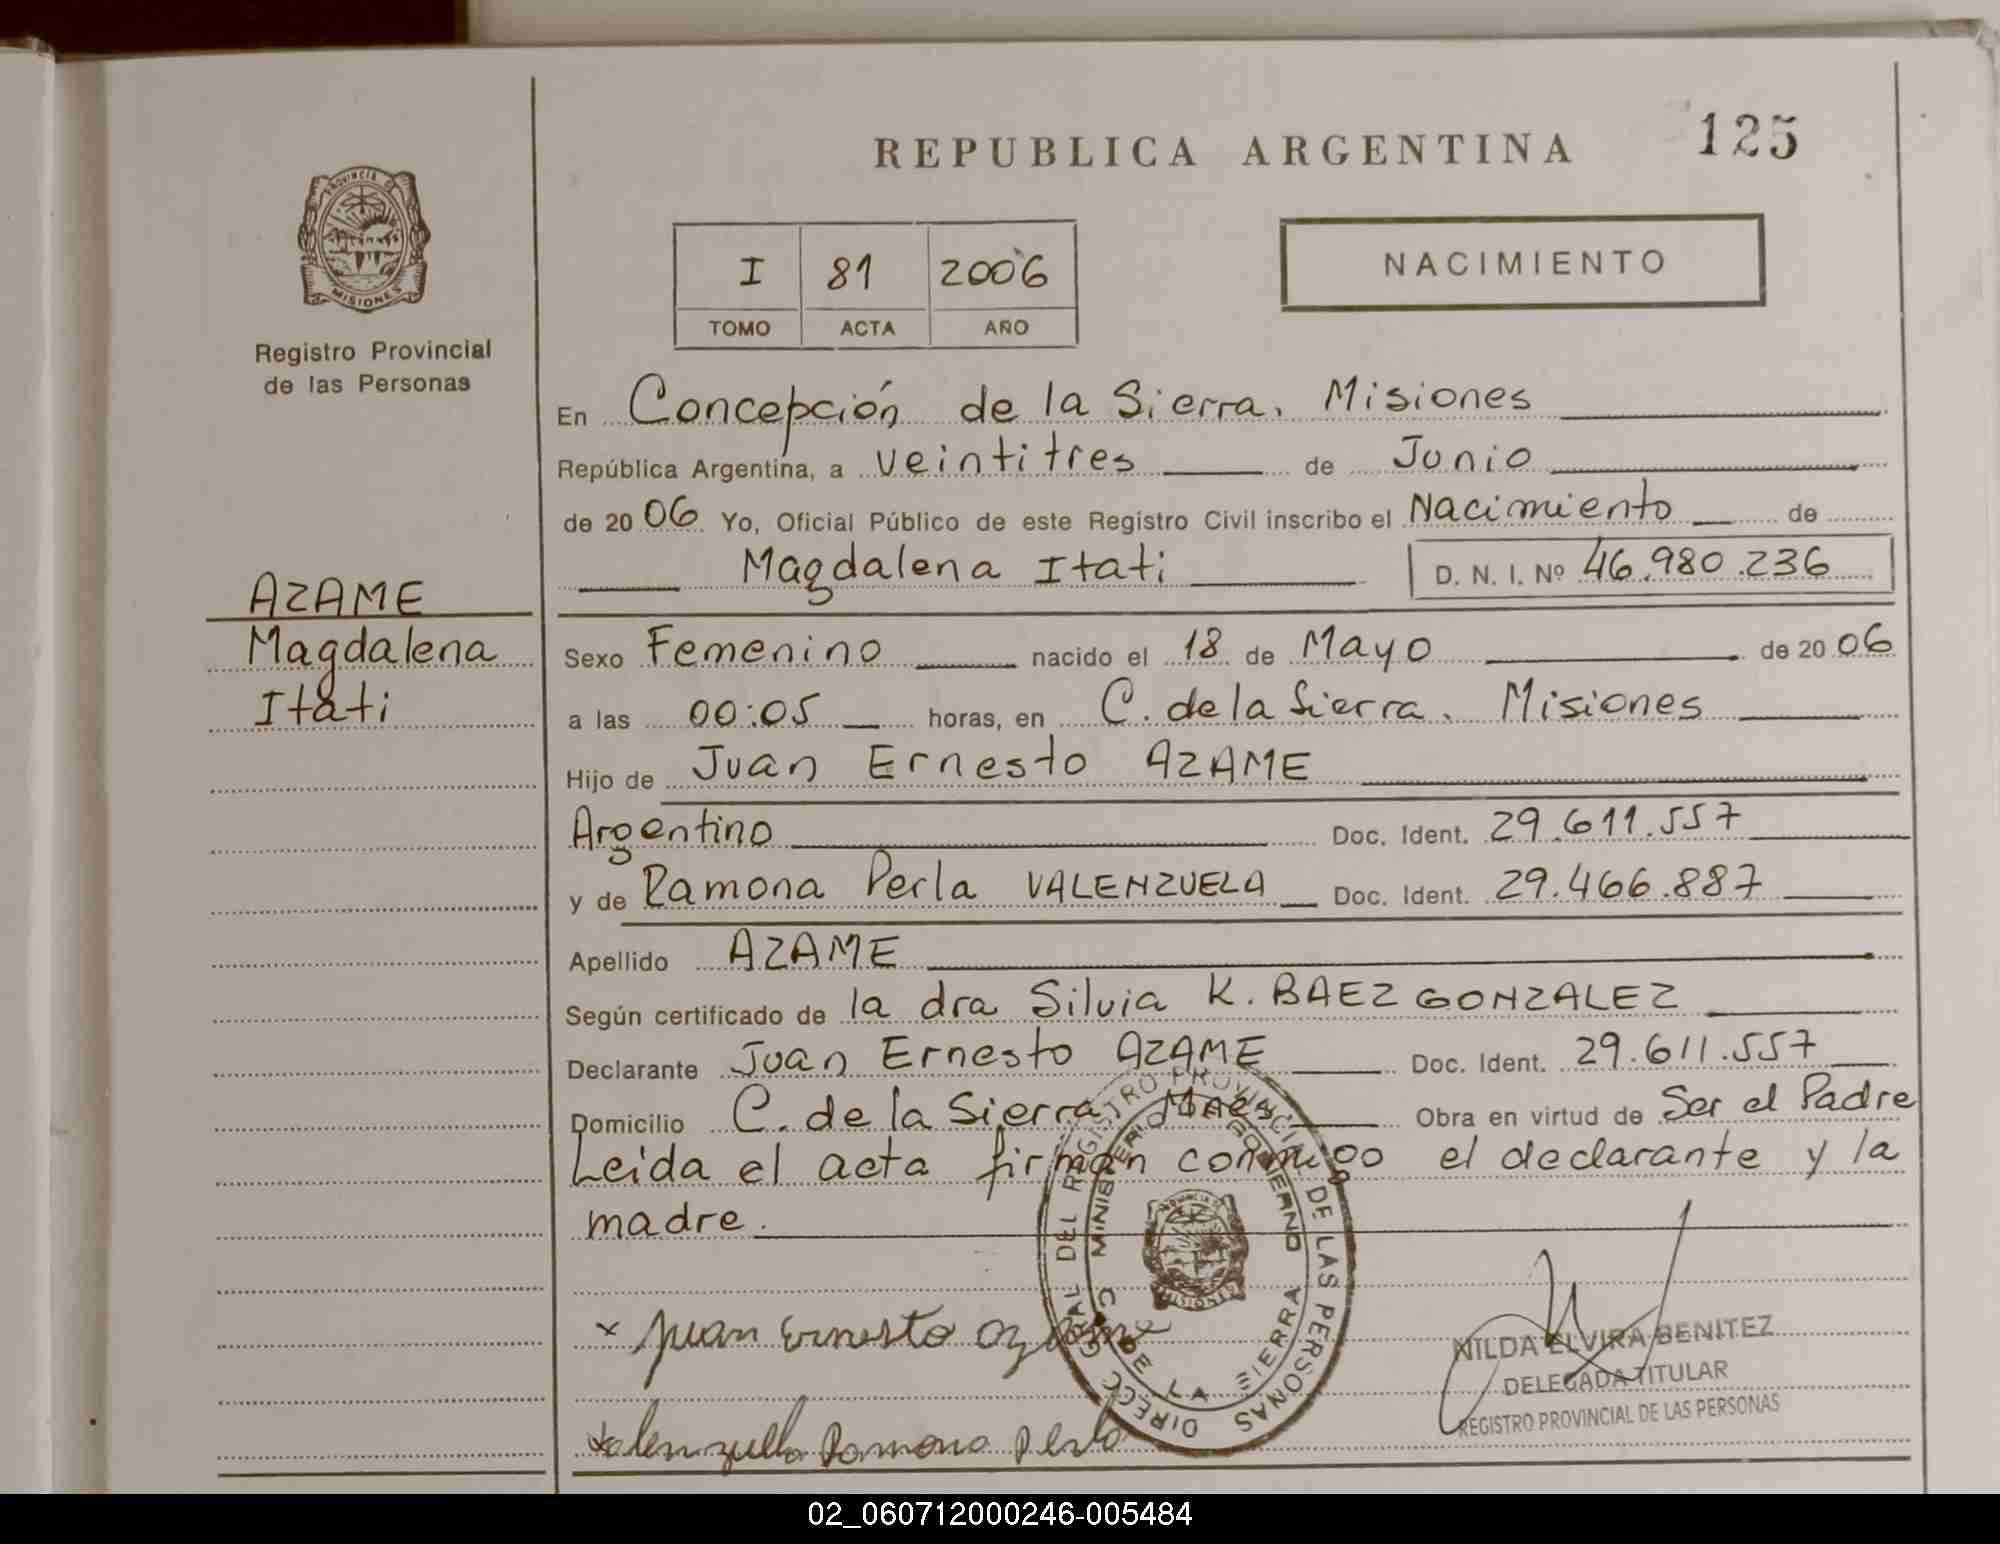 REPUBLICA ARGENTINA
125
PROVINCIA DE
MISIONES
Registro Provincial
de las Personas
I 81 2006
TOMO ACTA AÑO
NACIMIENTO
En Concepción de la Sierra, Misiones
República Argentina, a veintitres de Junio
de 2006 Yo, Oficial Público de este Registro Civil inscribo el Nacimiento de
Magdalena Itati D. N. I. Nº 46.980.236
AZAME
Magdalena
Itati
Sexo Femenino nacido el 18 de Mayo de 2006
a las 00:05 horas, en C. de la Sierra. Misiones
Hijo de Juan Ernesto AZAME
Argentino Doc. Ident. 29.611.557
y de Ramona Perla VALENZUELA Doc. Ident. 29.466.887
Apellido AZAME
Según certificado de la dra Silvia K. BAEZ GONZALEZ
Declarante Juan Ernesto AZAME Doc. Ident. 29.611.557
Domicilio C. de la Sierra, Mnes Obra en virtud de Ser el Padre
Leida el acta firman conmigo el declarante y la
madre.
DIRECC GRAL DEL REGISTRO PROVINCIAL DE LAS PERSONAS
MINISTERIO DE GOBIERNO
C. DE LA SIERRA
MISIONES
x Juan Ernesto azame
NILDA ELVIRA BENITEZ
DELEGADA TITULAR
REGISTRO PROVINCIAL DE LAS PERSONAS
Valenzuela Ramona Perla
02_060712000246-005484